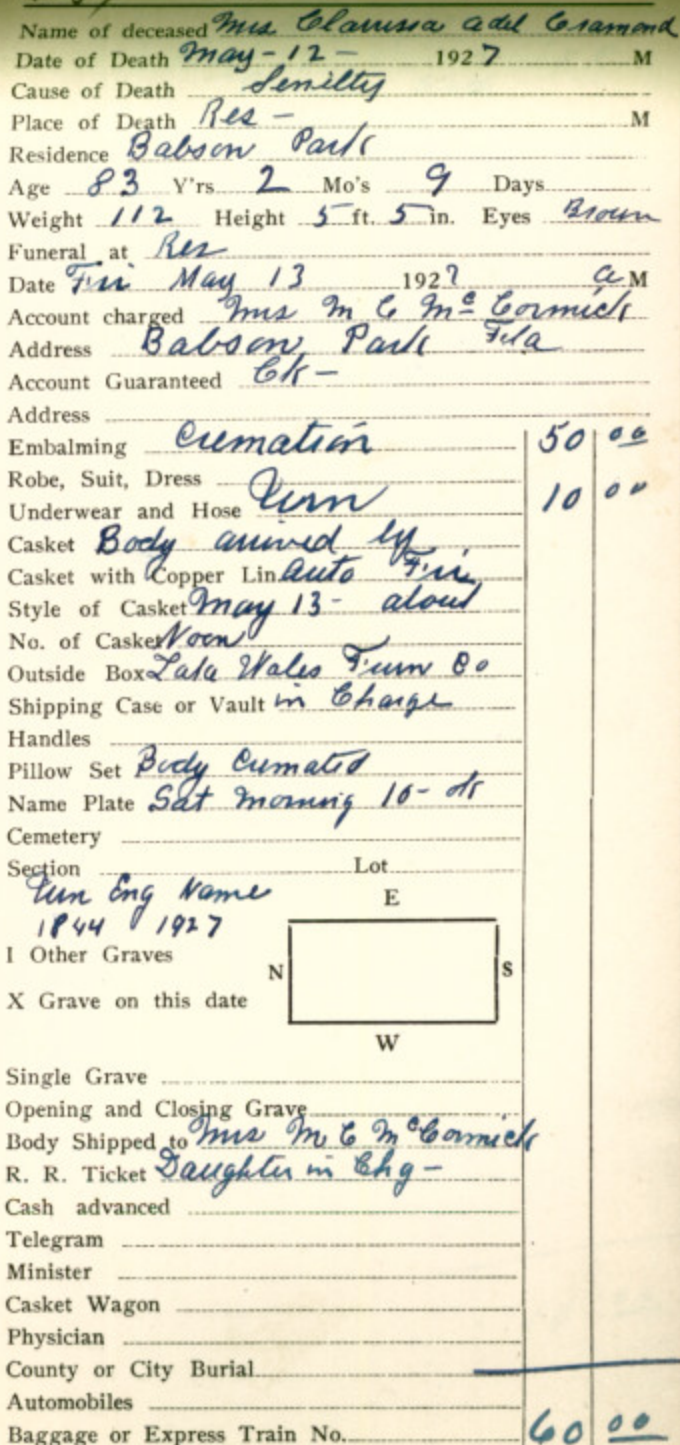 Name of deceased Mrs Clarissa Adel Cramond
Date of Death May - 12 - 1927 M
Cause of Death Senilty
Place of Death Res - M
Residence Babson Park
Age 83 Y'rs 2 Mo's 9 Days
Weight 112 Height 5 ft. 5 in. Eyes Brown
Funeral at Res
Date Fri May 13 1927 a M
Account charged Mrs M C McCormick
Address Babson Park Fla
Account Guaranteed Ck -
Address
Embalming Cremation 50 00
Robe, Suit, Dress
Underwear and Hose Urn 10 00
Casket Body arrived by
Casket with Copper Lin auto Fri
Style of Casket May 13 - about
No. of Casket Noon
Outside Box Lake Wales Furn Co
Shipping Case or Vault in Charge
Handles
Pillow Set Body Cremated
Name Plate Sat Morning 10 - ok
Cemetery
Section Lot
Urn Eng Name
E
1844 1927
I Other Graves
N S
X Grave on this date
W
Single Grave
Opening and Closing Grave
Body Shipped to Mrs M C McCormick
R. R. Ticket Daughter in Chg -
Cash advanced
Telegram
Minister
Casket Wagon
Physician
County or City Burial
Automobiles
Baggage or Express Train No. 60 00